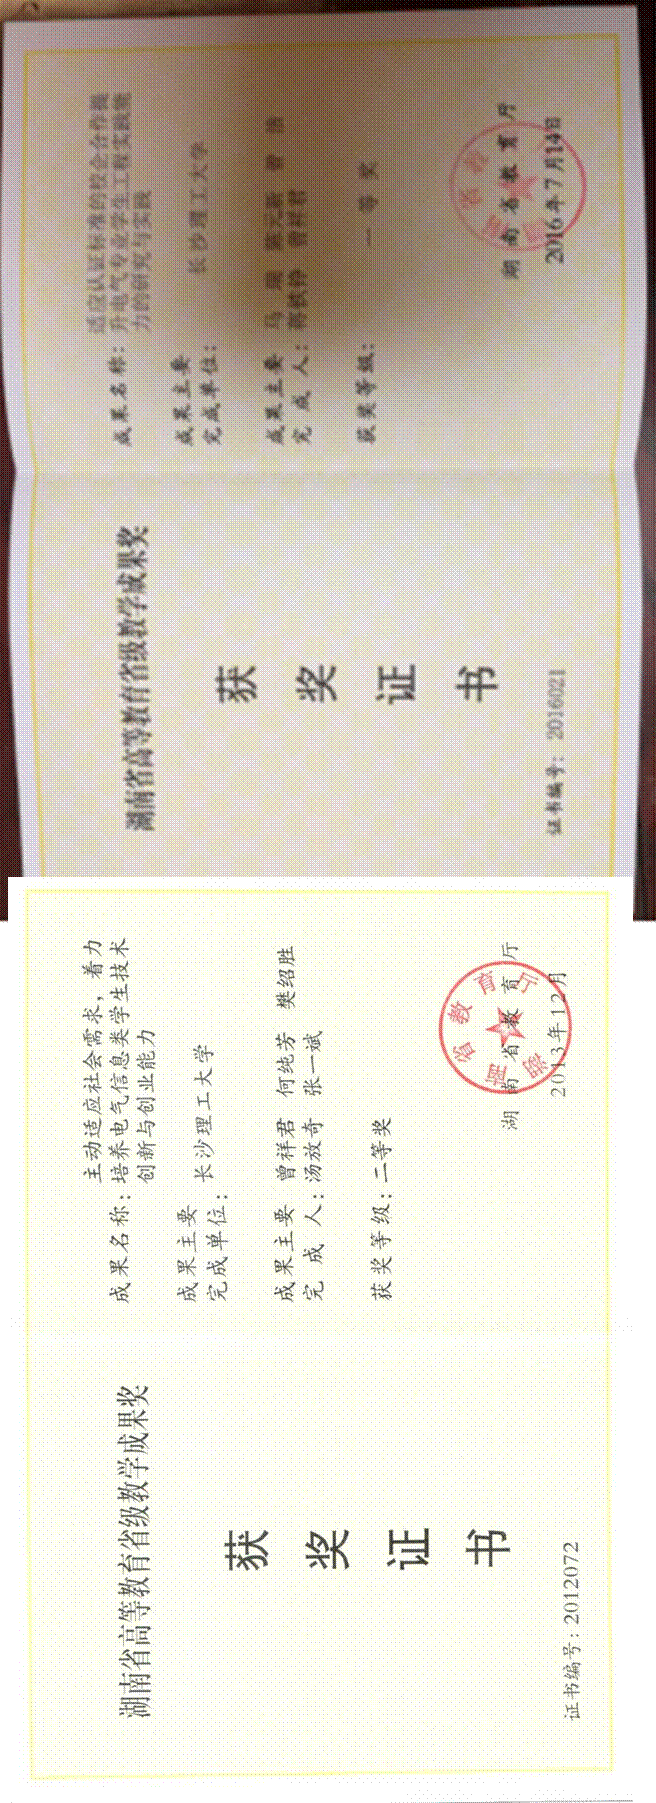 湖南省高等教育省级教学成果奖
获奖证书
证书编号：2016021
成果名称：适应认证标准的校企合作提
升电气专业学生工程实践能
力的研究与实践
成果主要
完成单位：长沙理工大学
成果主要
完成人：马瑞 陈元新 曾
蒋铁铮 曾祥君
获奖等级：一等奖
湖南省教育厅
2016年7月14日
湖南省高等教育省级教学成果奖
获奖证书
证书编号：2012072
主动适应社会需求，着力
成果名称：培养电气信息类学生技术
创新与创业能力
成果主要
完成单位：长沙理工大学
成果主要 曾祥君 何纯芳 樊绍胜
完成人：汤放奇 张一斌
获奖等级：二等奖
湖南省教育厅
2013年12月
湖南省教育厅